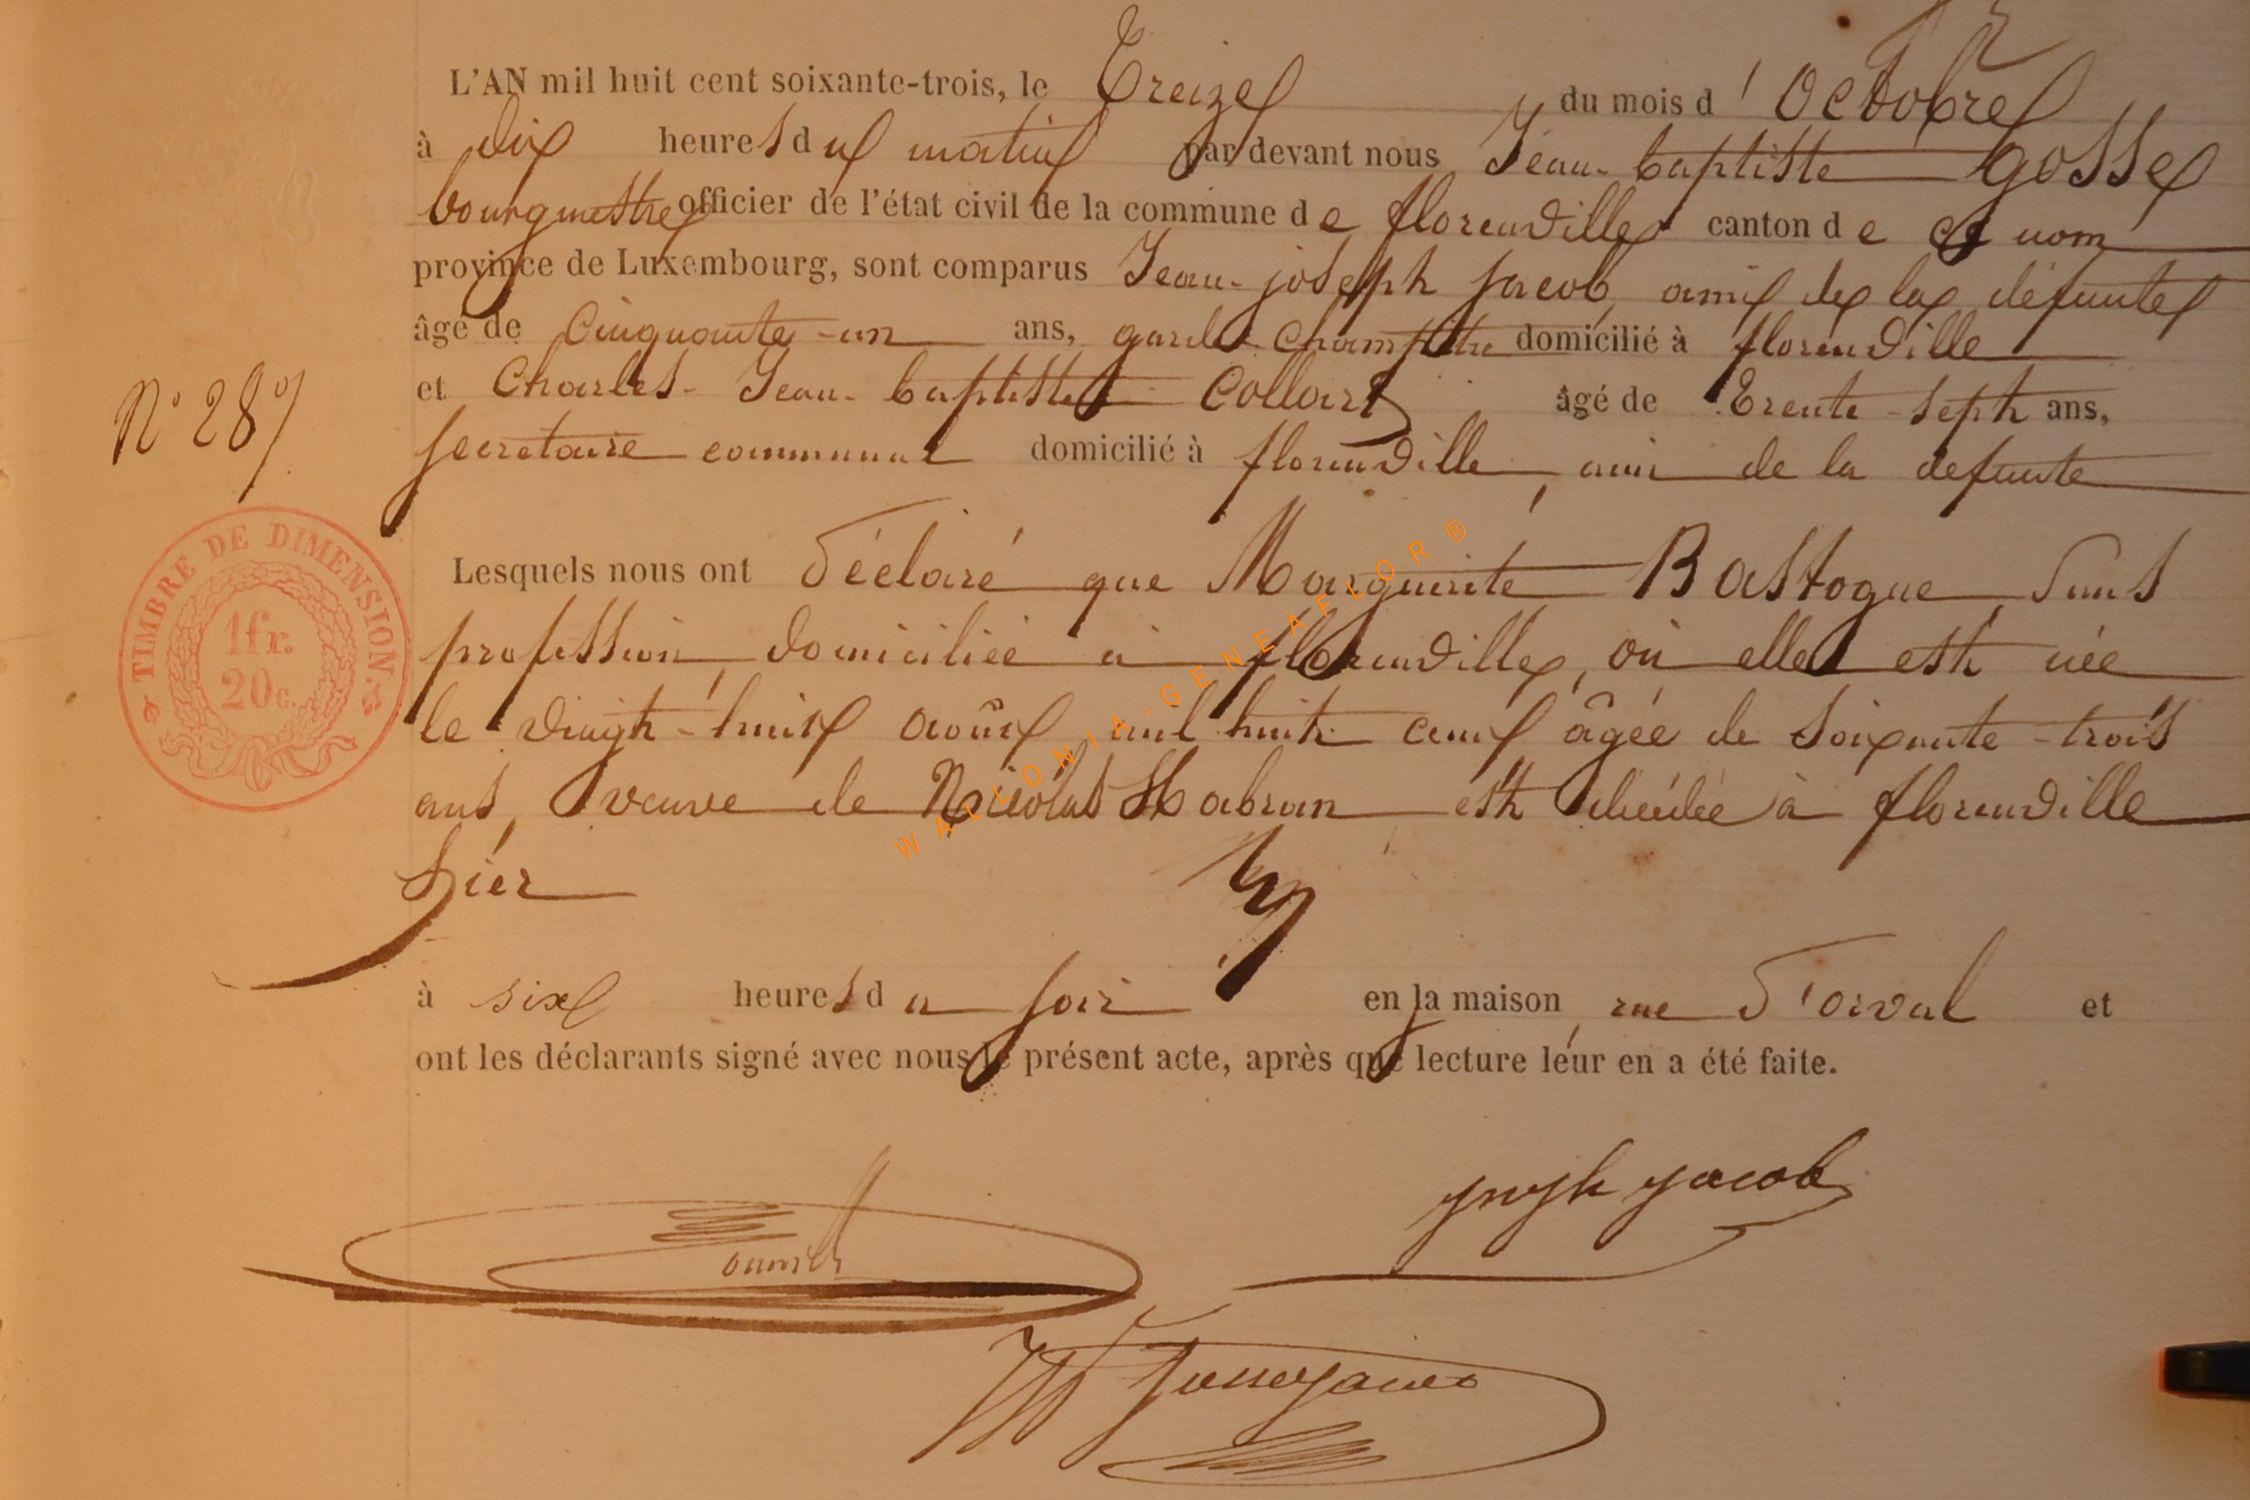 L'AN mil huit cent soixante-trois, le Treize du mois d'Octobre
à dix heures du matin par devant nous Jean-baptiste Gosse
bourgmestre officier de l'état civil de la commune de florenville canton de ce nom
province de Luxembourg, sont comparus Jean-joseph jacob, ami de la défunte
âgé de Cinquante-un ans, garde champêtre domicilié à florenville
et Charles-Jean-baptiste Collart âgé de Trente-sept ans,
secretaire communal domicilié à florenville, ami de la defunte
N° 28
TIMBRE DE DIMENSION.
1 fr.
20 c.
Lesquels nous ont Déclaré que Marguerite Bastogne, sans
profession, domiciliée à florenville, où elle est née
le vingt-huit août mil huit cent âgée de soixante-trois
ans, veuve de Nicolas Habran est décédée à florenville
hier
à six heures du soir en la maison, rue D'orval et
ont les déclarants signé avec nous le présent acte, après que lecture leur en a été faite.
joseph jacob
WALLONIA-GENEAFLOR®